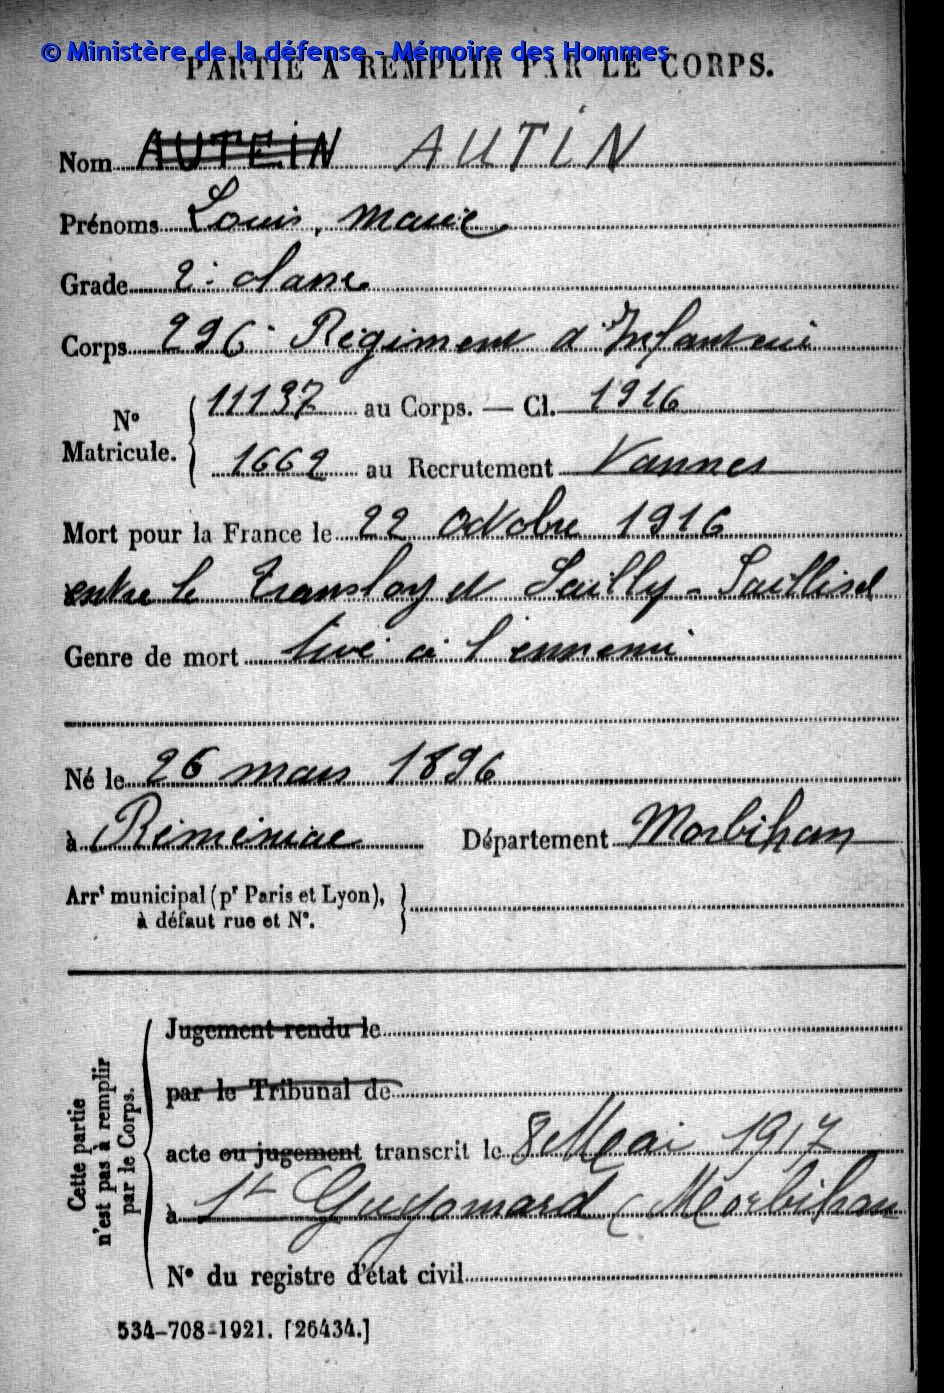 © Ministère de la défense - Mémoire des Hommes
PARTIE À REMPLIR PAR LE CORPS.
Nom AUTEIN AUTIN
Prénoms Louis, Marie
Grade 2e classe
Corps 296e Régiment d'Infanterie
N° Matricule. 11137 au Corps. — Cl. 1916
1662 au Recrutement Vannes
Mort pour la France le 22 Octobre 1916
entre le Transloy et Sailly-Saillisel
Genre de mort tué à l'ennemi
Né le 26 mars 1896
à Réminiac Département Morbihan
Arrt municipal (pr Paris et Lyon),
à défaut rue et N°.
Cette partie
n'est pas à remplir
par le Corps.
Jugement rendu le
par le Tribunal de
acte ou jugement transcrit le 8 Mai 1917
à St Guyomard (Morbihan
N° du registre d'état civil
534-708-1921. [26434.]